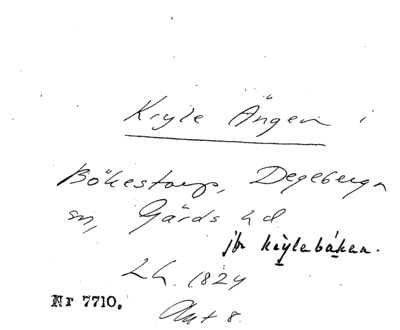 Kryle Ängen i
Bökestorp, Degeberga
sn, Gärds hd
jfr krylebáken.
Lh. 1824
Akt 8.
Nr 7710.